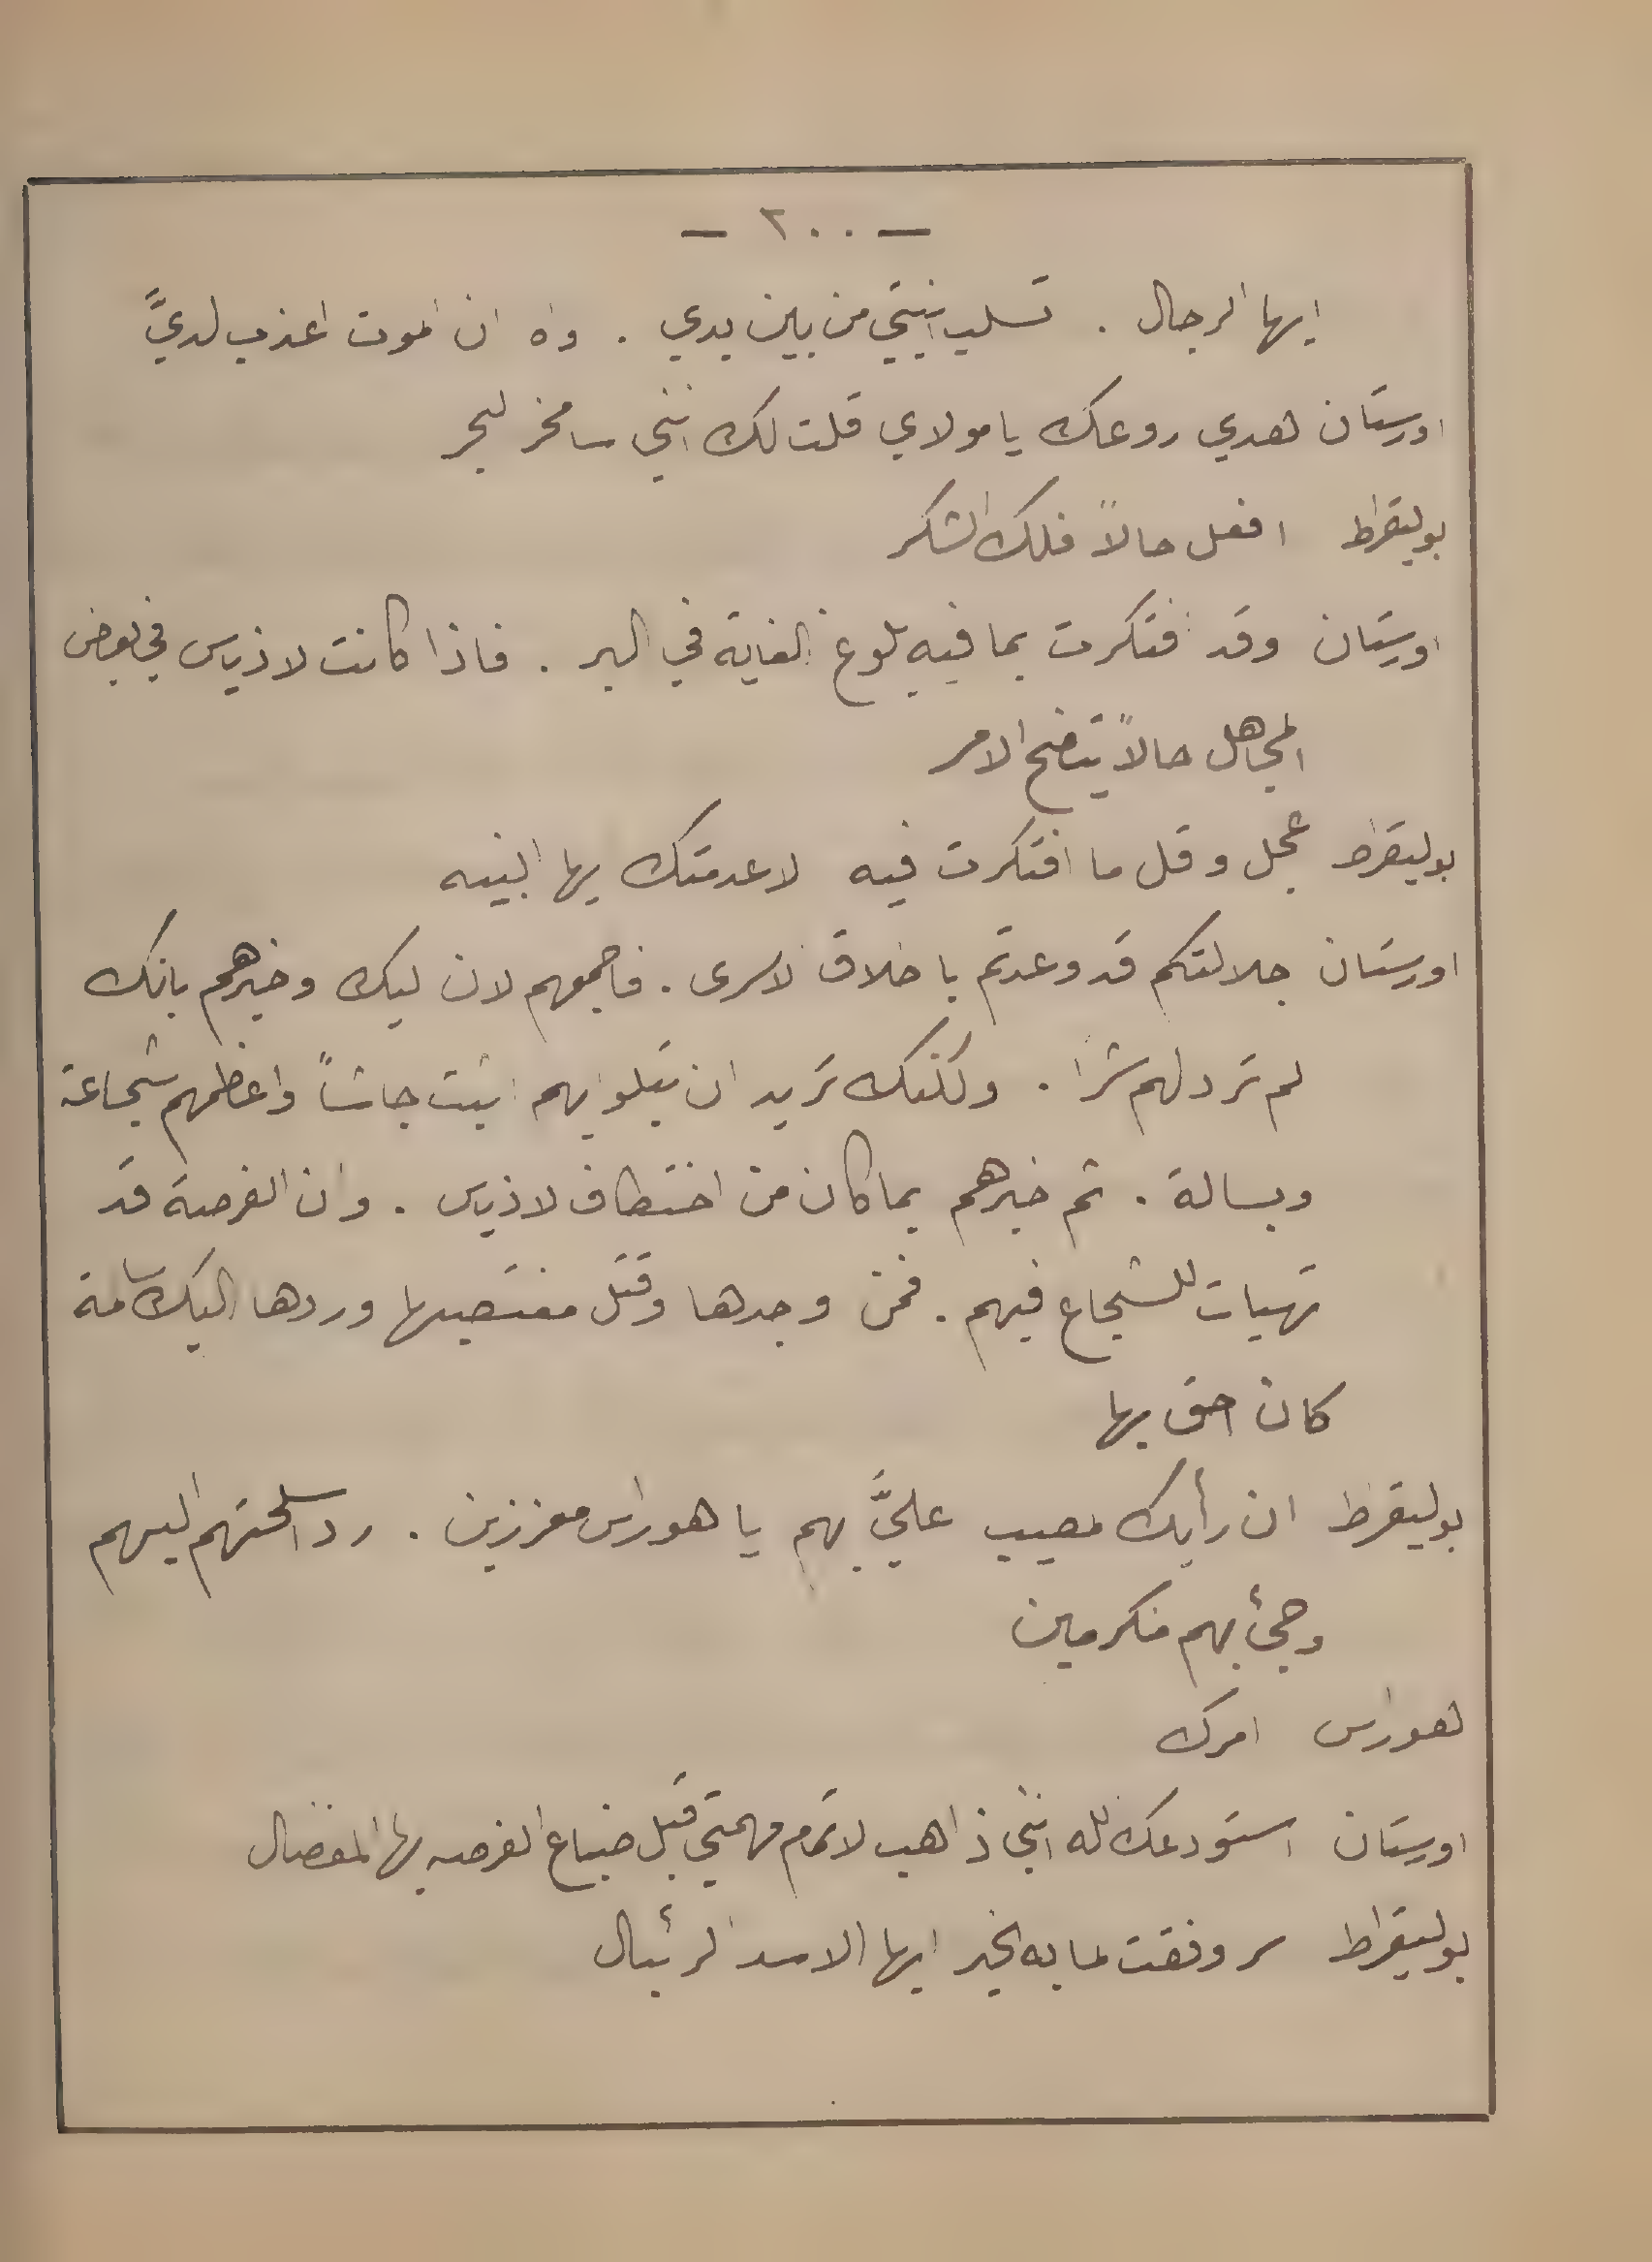 — ٢٠٠ —
ايها الرجال . تسلب ابنتي من بين يدي . واه ان الموت اعذب لديَّ
اورستان هدي روعك يا مولاي قلت لك انني سامخر البحر
بوليقراط افعل حالاً فلك الشكر
اورستان وقد افتكرت بما فيه بلوغ الغاية في البر . فاذا كانت لاذياس في بعض
المجاهل حالاً يتضح الامر
بوليقراط عجل وقل ما افتكرت فيه لا عدمتك ايها النبيه
اورستان جلالتكم قد وعدتم باخلاق الاسرى . فاجمعهم الان اليك وخبرهم بانك
لم ترد لهم شرا . ولكنك تريد ان تبلو ايهم اثبت جاشاً واعظمهم شجاعة
وبسالة . ثم خبرهم بما كان من اختطاف لاذياس . وان الفرصة قد
تهيات للشجاع فيهم . فمن وجدها وقتل مغتصبها وردها اليك سالمة
كان احق بها
بوليقراط ان رأيك لمصيب عليَّ بهم يا هوراس معززين . رد اسلحتهم اليهم
وجئ بهم مكرمين
هوراس امرك
اورستان استودعك الله انني ذاهب لاتمام مهمتي قبل ضياع الفرصه ايها المفضال
بوليقراط سر وفقت لما به الخير ايها الاسد الرئبال